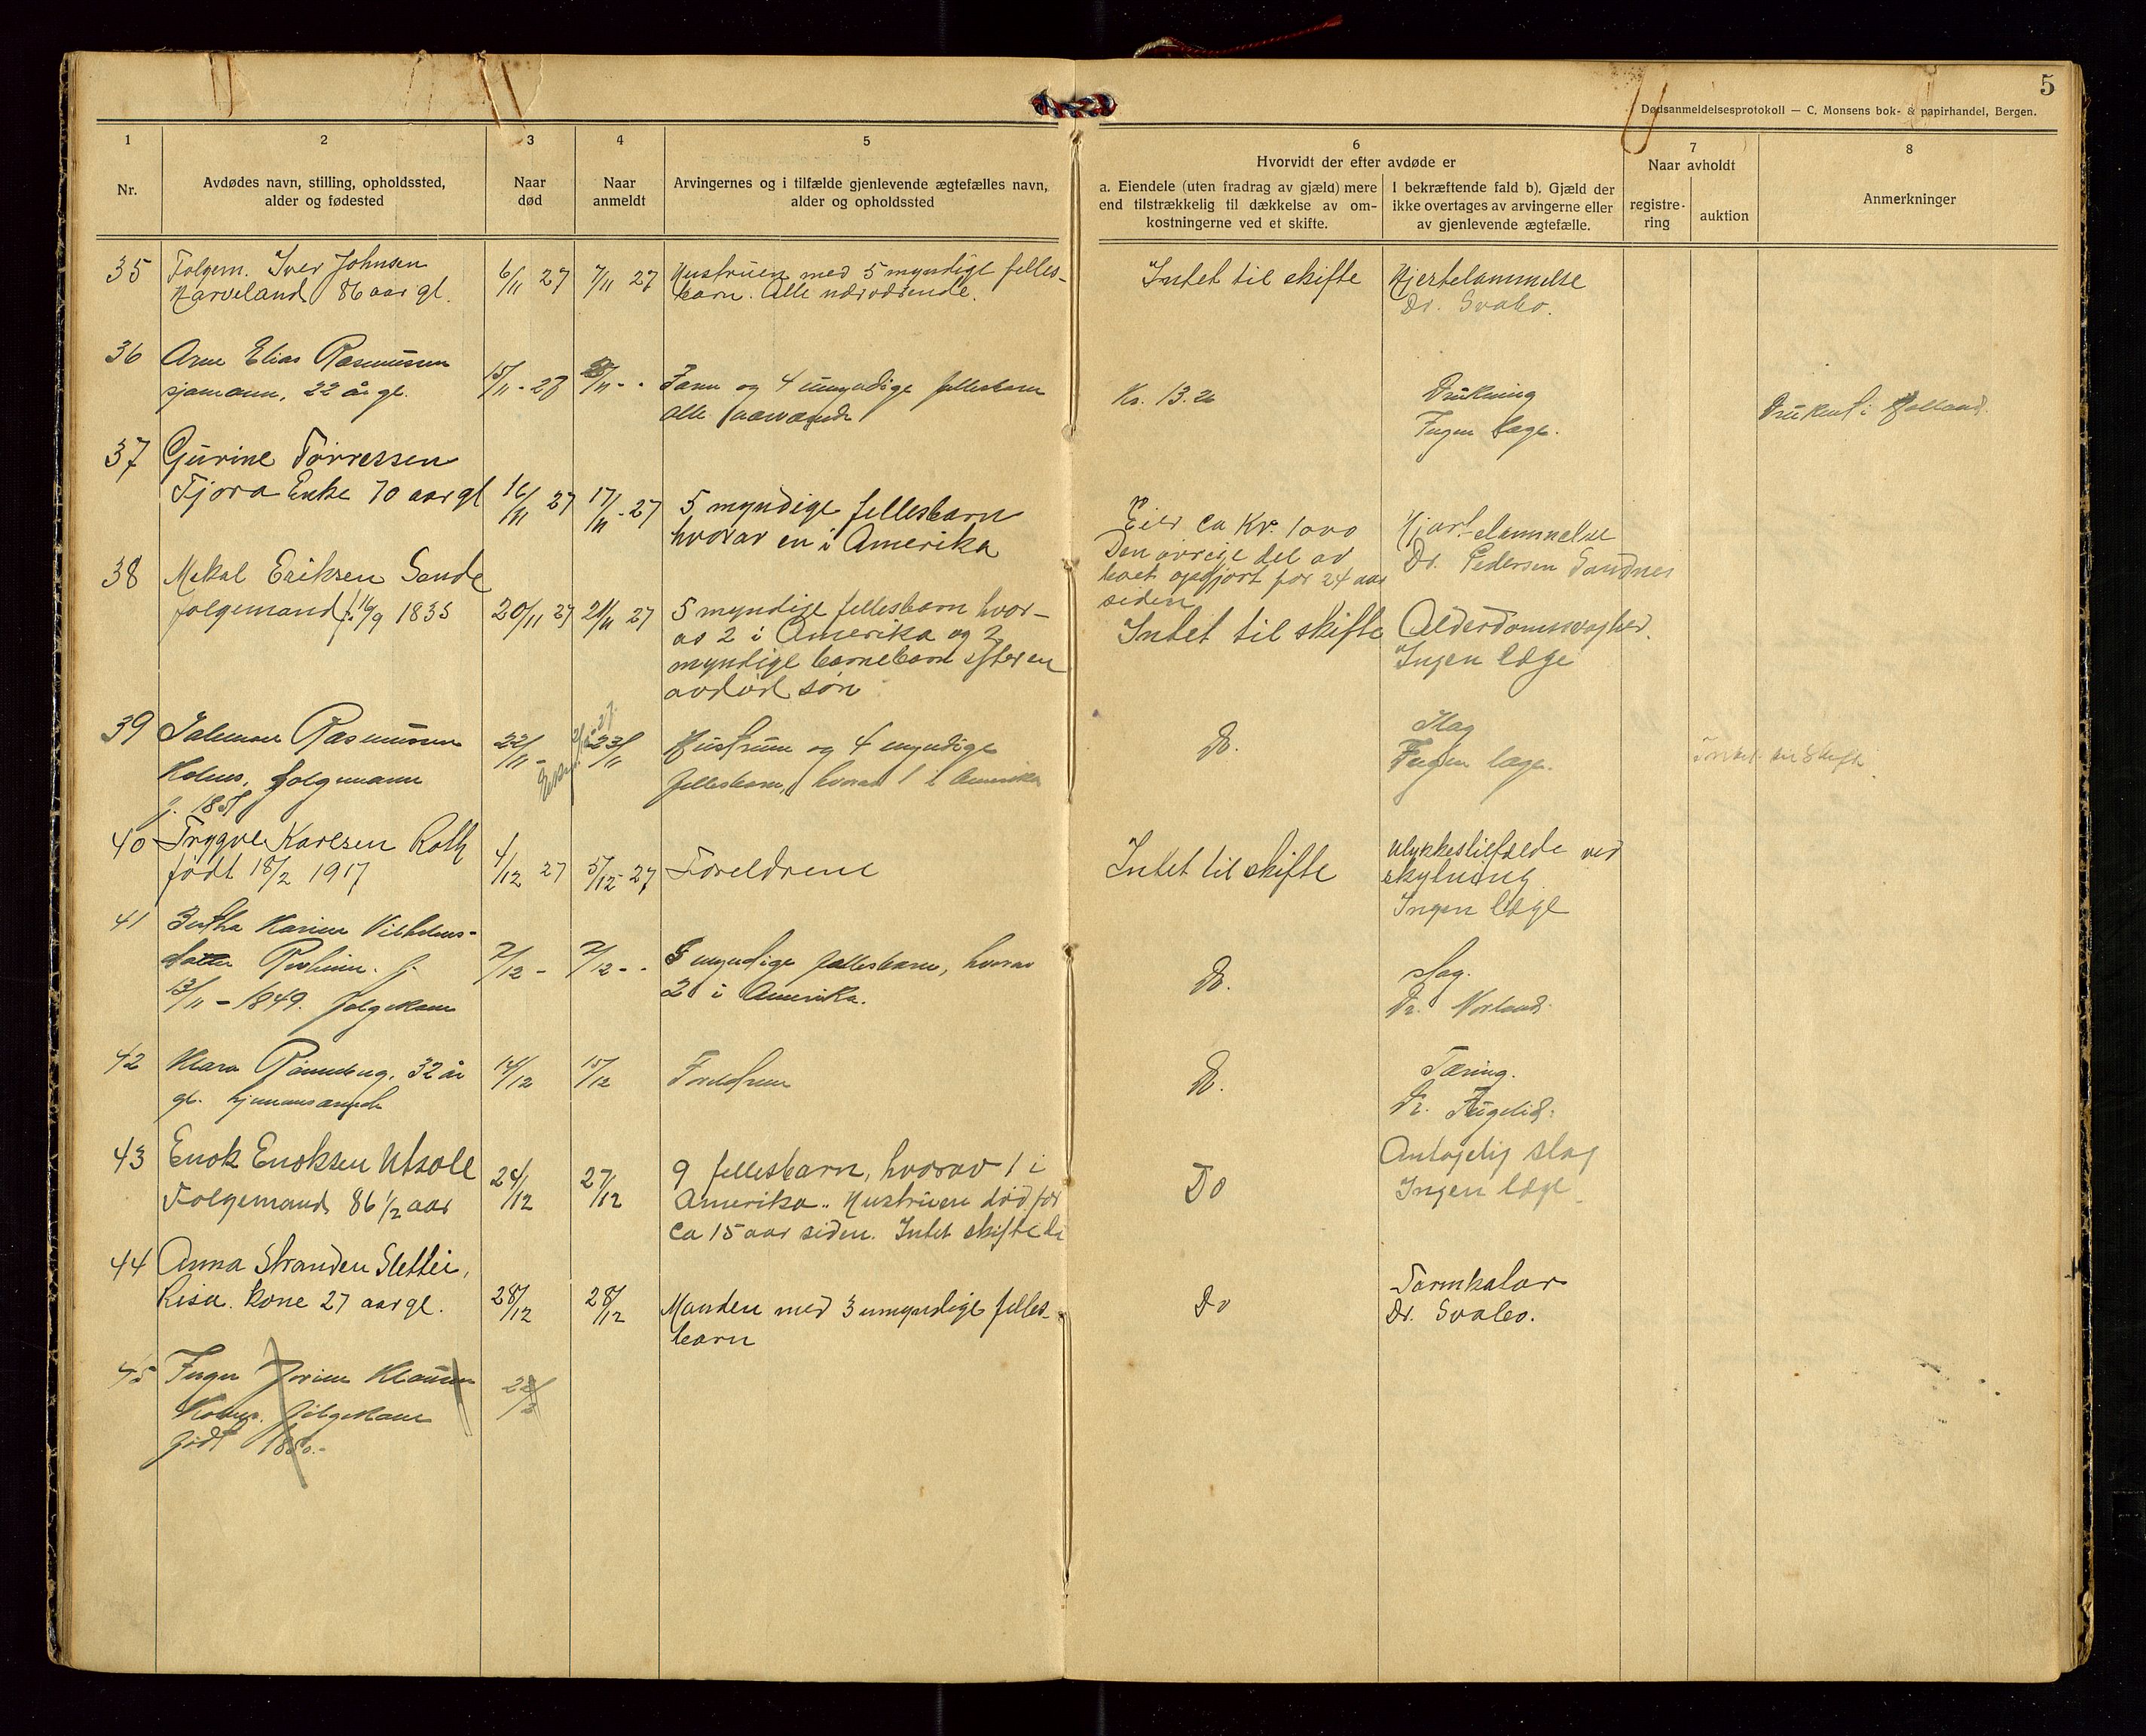 5
Dødsanmeldelsesprotokoll — C. Monsens bok- & papirhandel, Bergen.
1
2
3
4
5
6
7
8
Nr.
Avdødes navn, stilling, opholdssted,
alder og fødested
Naar
død
Naar
anmeldt
Arvingernes og i tilfælde gjenlevende ægtefælles navn,
alder og opholdssted
Hvorvidt der efter avdøde er
a. Eiendele (uten fradrag av gjæld) mere
end tilstrækkelig til dækkelse av om-
kostningerne ved et skifte.
I bekræftende fald b). Gjæld der
ikke overtages av arvingerne eller
av gjenlevende ægtefælle.
Naar avholdt
registre-
ring
auktion
Anmerkninger
35
Folgem. Iver Johnsen
Harveland 86 aar gl.
6/11 27
7/11 27
Hustruen med 5 myndige felles-
barn. Alle nærværende.
Intet til skifte
Hjertelammelse
Dr. Svabo.
36
Arne Elias Rasmussen
sjømann, 22 år gl.
15/11 - 27
/11 - -
og 4 umyndige fellesbarn
alle
Kr. 13.20
Drukning
Ingen læge.
Druknet i Holland.
37
Gurine Tørressen
Tjora Enke 70 aar gl
16/11 27
17/11 - 27
5 myndige fellesbarn
hvorav en i Amerika
Eier ca Kr. 1000
Den øvrige del av
boet opgjort for 24 aar
siden
Hjertelammelse
Dr. Pedersen Sandnes
38
Mikal Eriksen Sande
folgemand f. 16/9 1835
20/11 27
21/11 27
5 myndige fellesbarn hvor-
av 2 i Amerika og 2
myndige barnebarn efter en
avdød søn
Intet til skifte
Alderdomssvaghed.
Ingen læge
39
Salomon Rasmussen
Holms, folgemann
f. 185
22/11 -
23/11
Hustruen og 4 myndige
fellesbarn, hvorav 1 i Amerika
Do.
Slag
Ingen læge.
Intet til skifte
40
Trygve Karlsen Roth
født 18/2 1917
4/12 27
5/12 - 27
Foreldrene
Intet til skifte
Ulykkestilfælde ved
skytning
Ingen læge
41
Bertha Karine Vilhelms-
datter f.
13/11 - 1849. folgekone
2/12 -
2/12 - -
5 myndige fellesbarn, hvorav
2 i Amerika.
Do.
Slag.
Dr. Norland.
42
Klara Rønneberg, 32 år
gl.
14/12
15/12
Foreldrene
Do.
Tæring.
Dr.
43
Enok Enoksen Utsole
Folgemand 86 1/2 aar
24/12
27/12
9 fellesbarn, hvorav 1 i
Amerika. Hustruen død for
ca 15 aar siden. Intet skifte da
Do
Antagelig slag
Ingen læge
44
Anna Stranden Slettei,
Risa. kone 27 aar gl.
28/12
28/12
Manden med 3 umyndige felles-
barn
Do
Tarmkatar
Dr. Svabo.
45
Inger Jorine Klausen
folgekone
født 1850.-